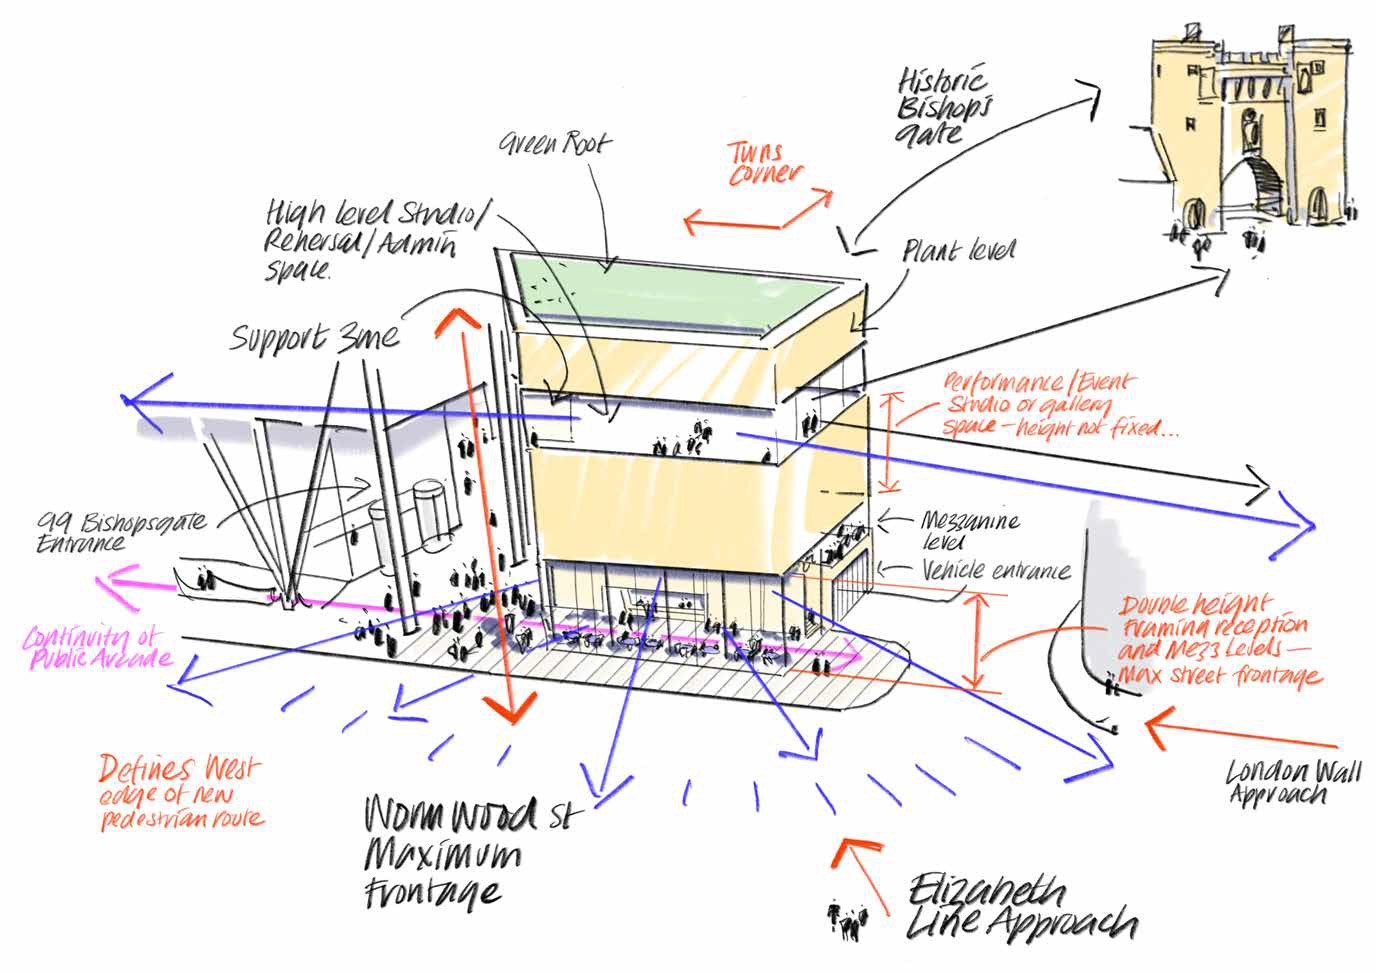 Historic
Bishops
gate
Green Roof
Turns
Corner
High level Studio/
Rehersal/Admin
space.
Plant level
Support Zone
Performance/Event
Studio or gallery
space - height not fixed...
99 Bishopsgate
Entrance
Mezzanine
level
Vehicle entrance
Double height
Framing reception
and Mezz Levels -
Max street frontage
Continuity of
Public Arcade
Defines West
edge of new
pedestrian route
London Wall
Approach
Wormwood St
Maximum
Frontage
Elizabeth
Line Approach